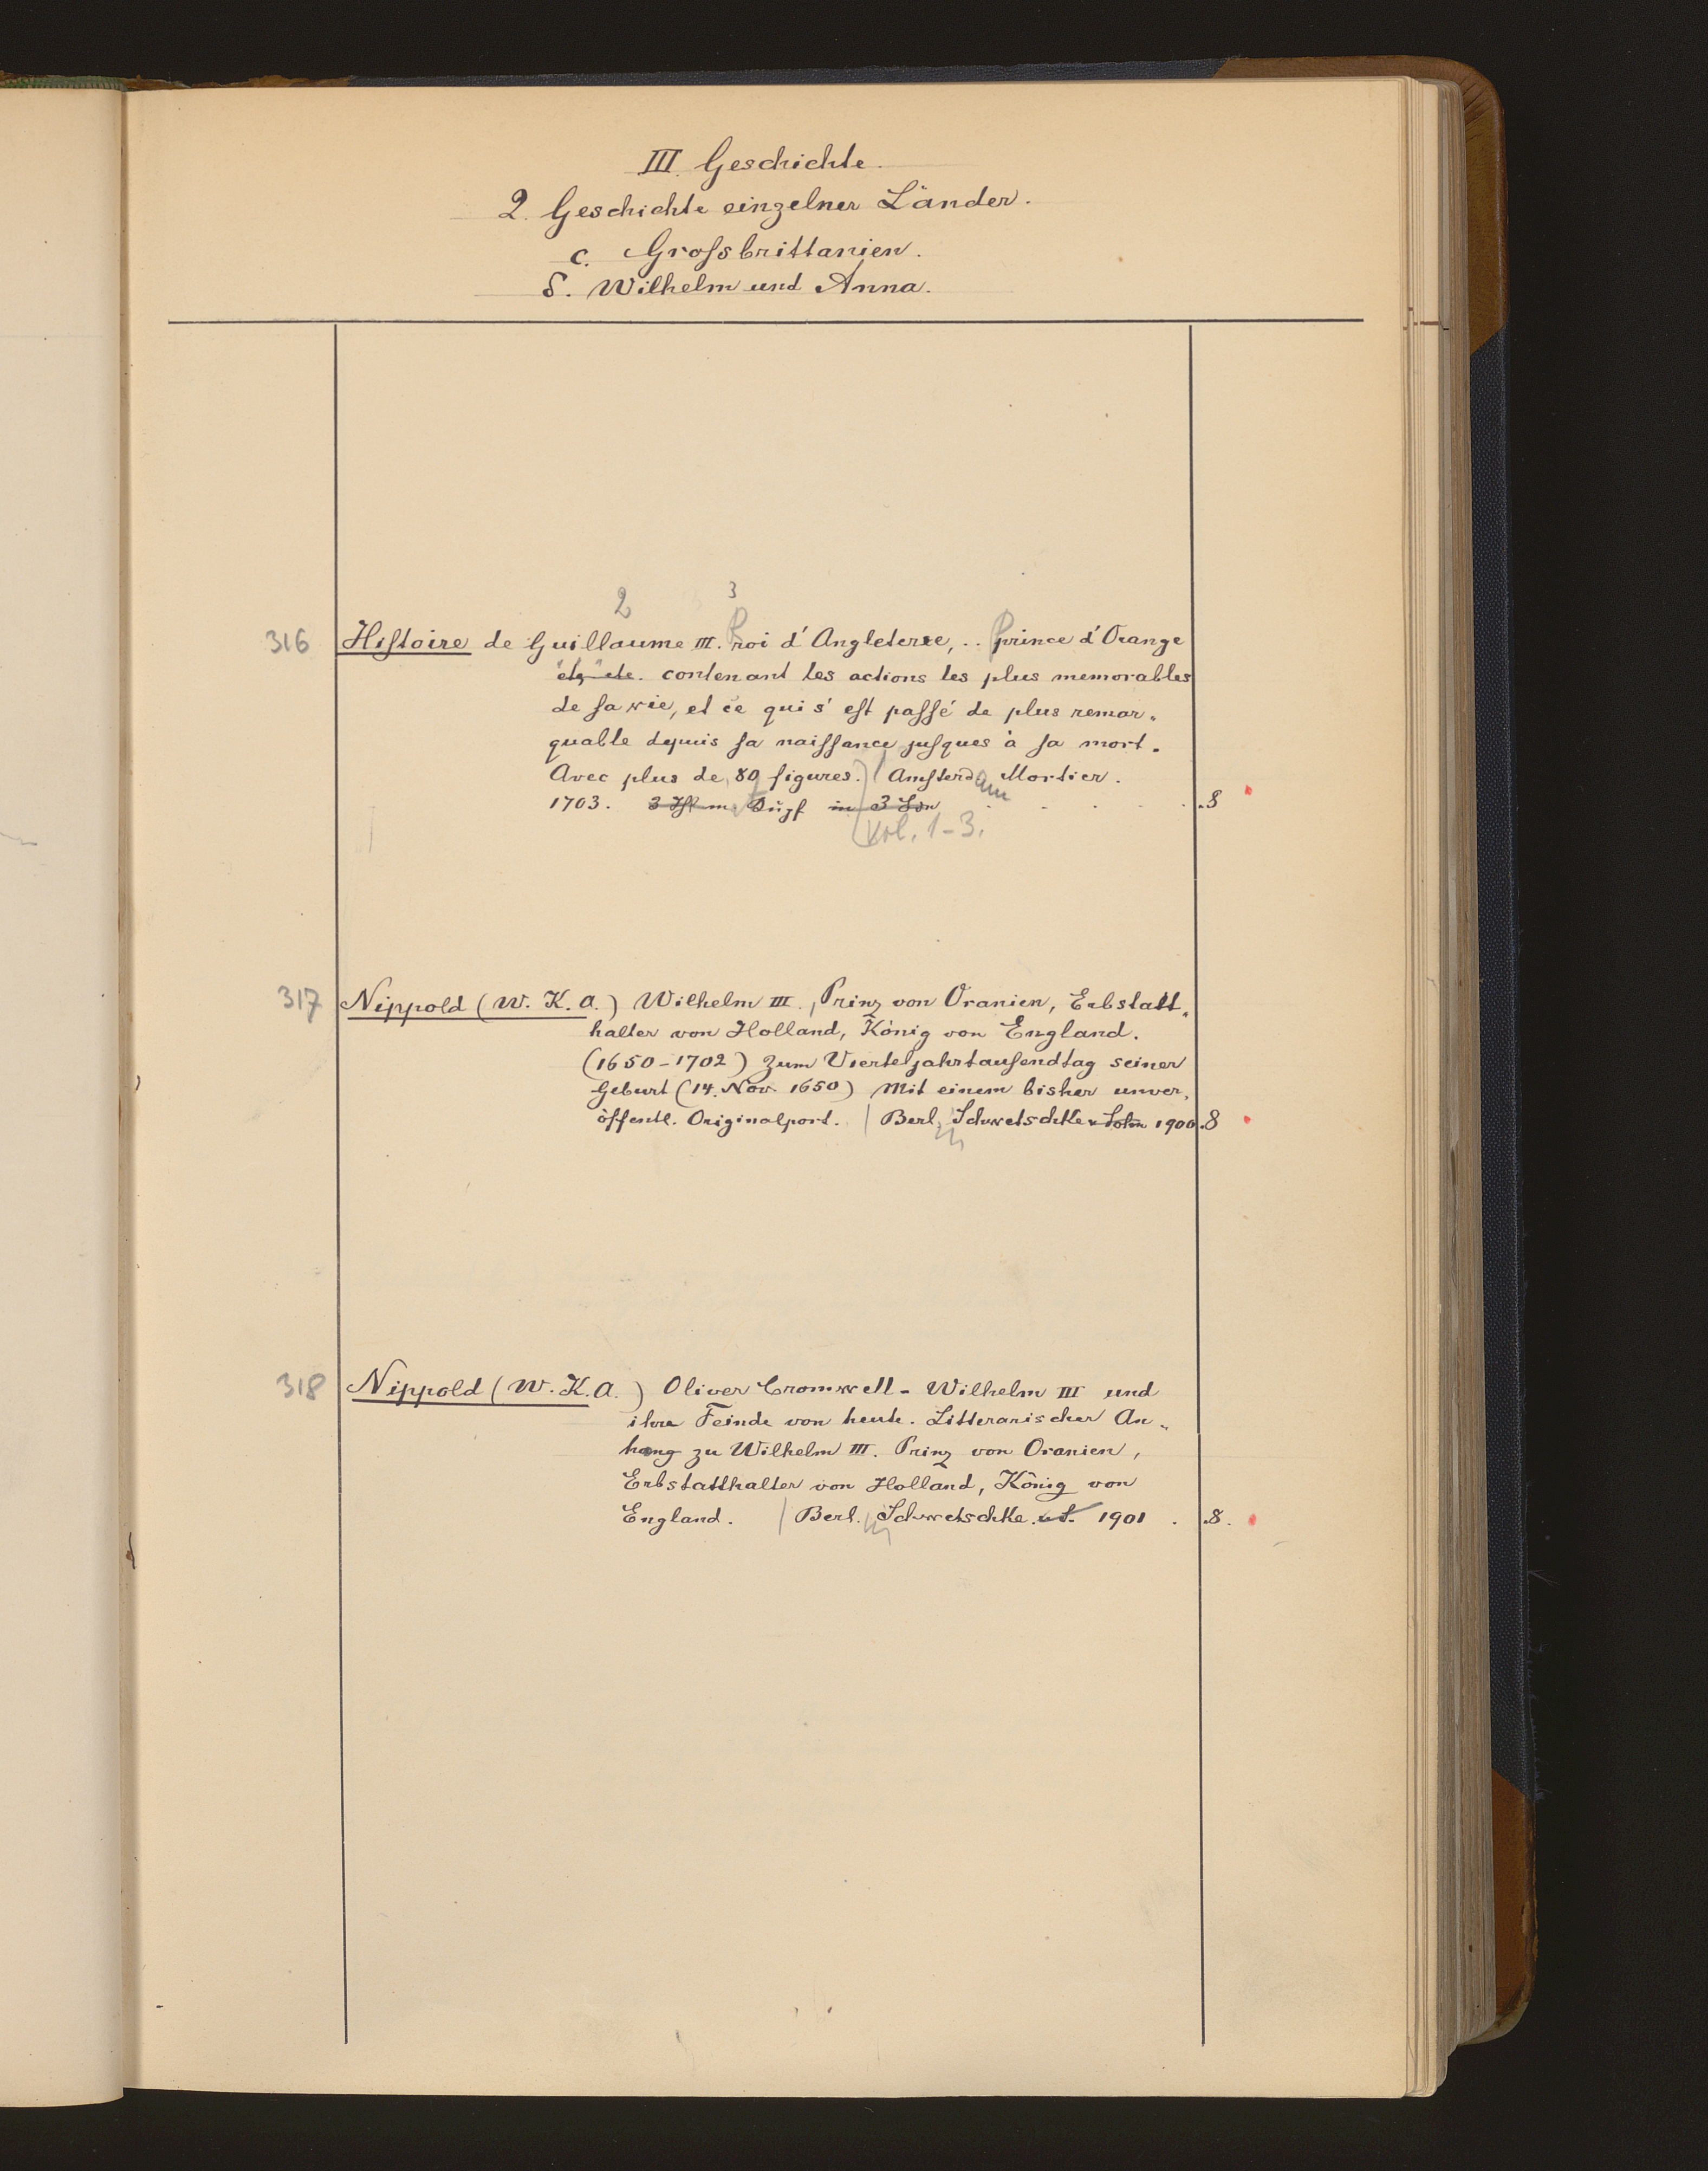 III. Geschichte.
2. Geschichte einzelner Länder.
c. Grofsbrittanien.
δ. Wilhelm und Anna.
2 3
316 Hiſtoire de Guillaume III. Roi d'Angleterre, .. Prince d'Orange
etc. contenant les actions les plus memorables
de ſa vie, et ce qui s'eſt paſſé de plus remar„
quable depuis ſa naiſſance juſques à ſa mort.
Avec plus de 80 figures. | Amſterdam Mortier.
1703. in 3 . . . . . 8
Vol. 1-3.
317 Nippold (W. K. A.) Wilhelm III., Prinz von Oranien, Erbstatt„
halter von Holland, König von England.
(1650-1702) Zum Vierteljahrtauſendtag seiner
Geburt (14. Nov. 1650) Mit einem bisher unver„
öffentl. Originalport. | Berl. Schwetschke u. Sohn 1900. 8
318 Nippold (W. K. A.) Oliver Cromwell - Wilhelm III und
ihre Feinde von heute. Litterarischer An„
hang zu Wilhelm III. Prinz von Oranien,
Erbstatthalter von Holland, König von
England. | Berl. Schwetschke u. S. 1901 . 8.